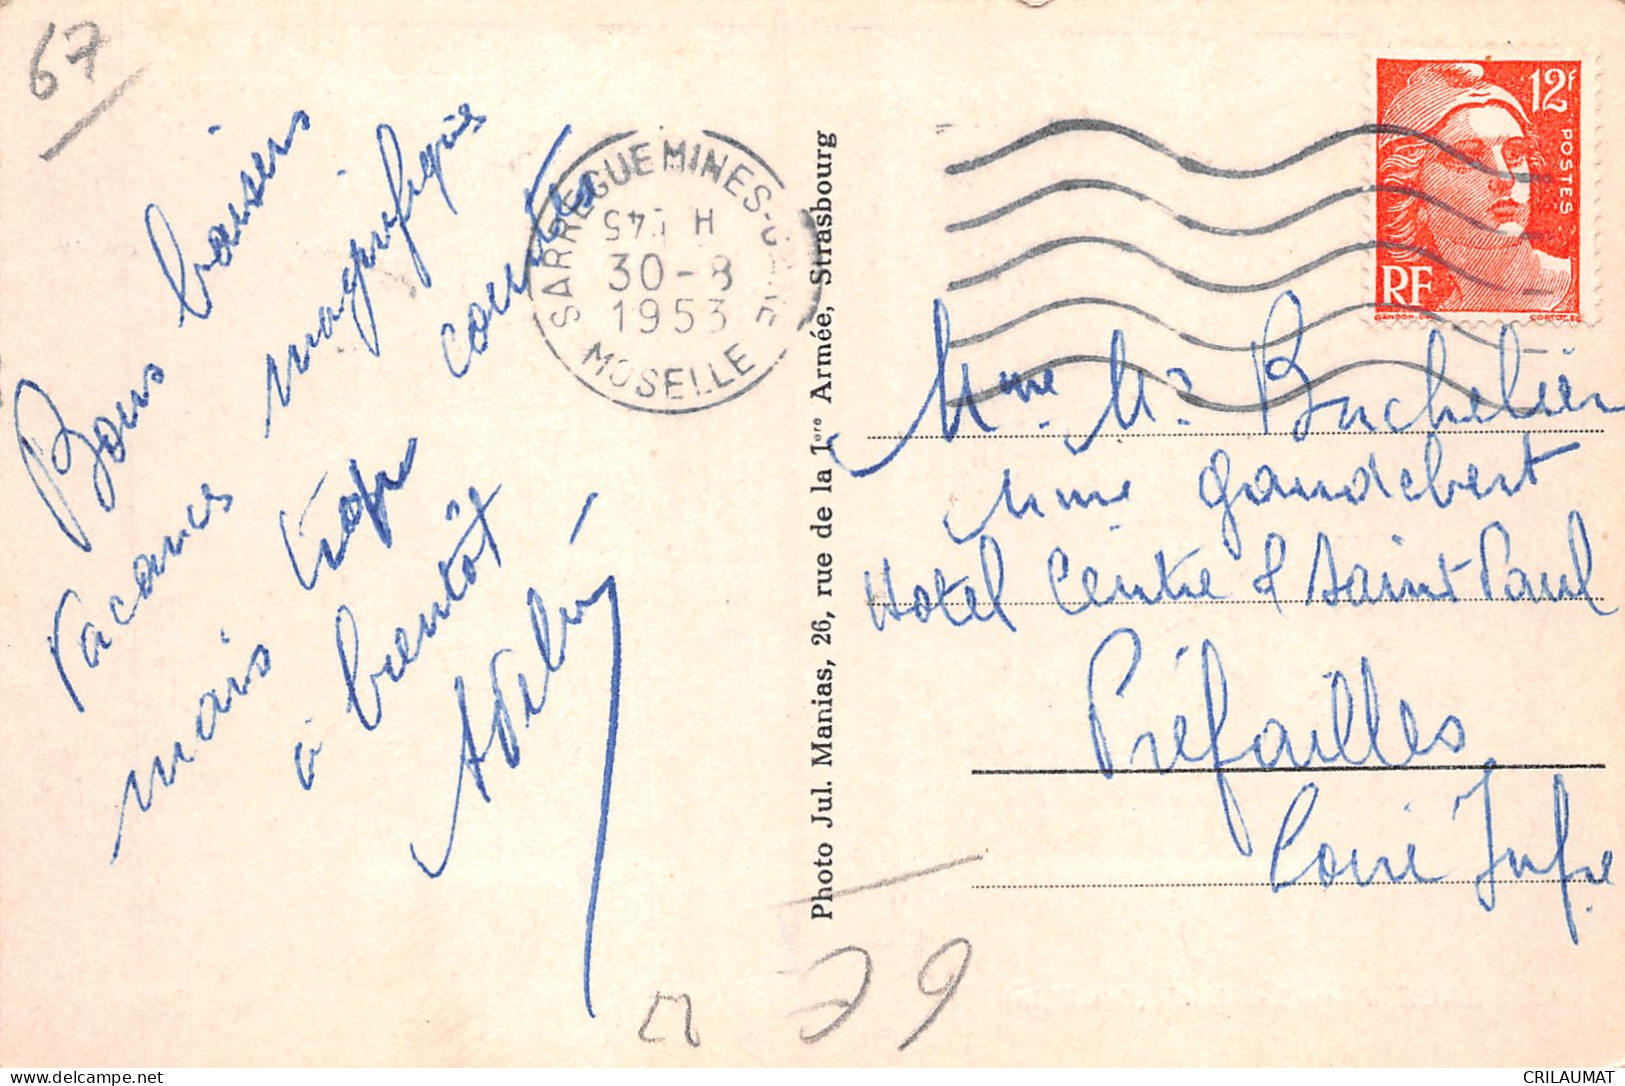 67
Bons baisers
Vacances magnifiques
mais trop courtes
à bientôt
SARREGUEMINES-GARE
H 45
30-8
1953
MOSELLE
Photo Jul. Manias, 26, rue de la Iere Armée, Strasbourg
12F
POSTES
RF
GANDON
CORTOT.SC
Mme Ma Bachelier
Mme Gaudebert
Hotel Centre & Saint Paul
Préfailles
Loire Infre
CRILAUMAT